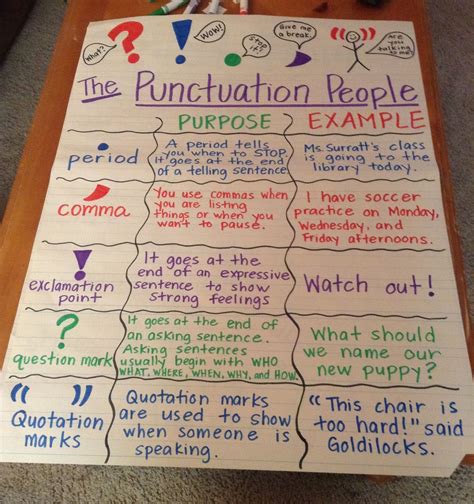 What?
WOW!
Stop it!
Give me a break!
Are you talking to me?
The Punctuation People
PURPOSE EXAMPLE
period
A period tells
you when to STOP.
It goes at the end
of a telling sentence
Ms. Surratt's class
is going to the
library today.
comma
You use commas when
you are listing
things or when you
want to pause.
I have soccer
practice on Monday,
Wednesday, and
Friday afternoons.
exclamation
point
It goes at the
end of an expressive
sentence to show
strong feelings
Watch out!
?
question mark
It goes at the end of
an asking sentence.
Asking sentences
usually begin with WHO
WHAT, WHERE, WHEN, WHY, and HOW.
What should
we name our
new puppy?
“ ”
Quotation
marks
Quotation marks
are used to show
when someone is
speaking.
“This chair is
too hard!" said
Goldilocks.